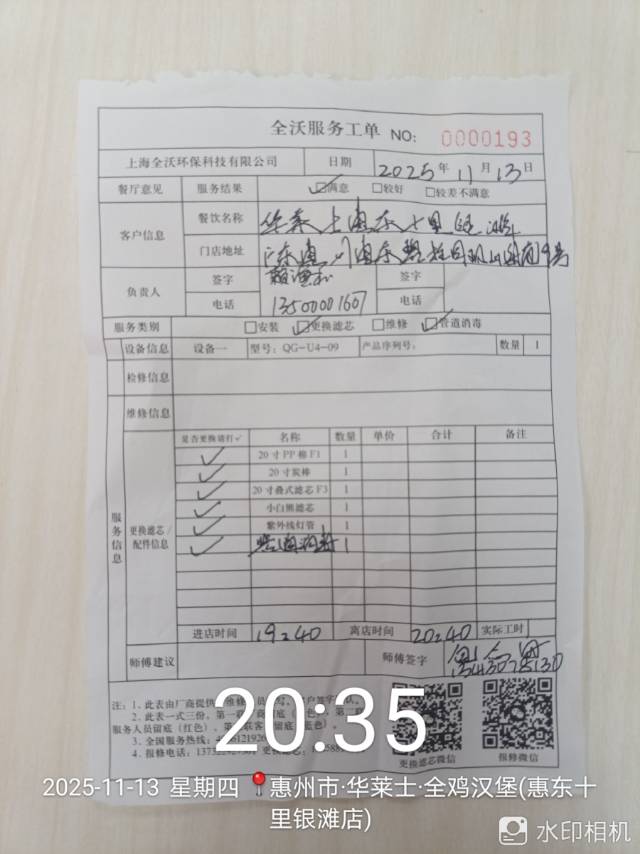 全沃服务工单 NO: 0000193
上海全沃环保科技有限公司 日期 2025年11月13日
餐厅意见 服务结果 ☑满意 □较好 □较差不满意
客户信息 餐饮名称 华莱士惠东十里银滩
门店地址
负责人 签字 签字
电话 13500001607 电话
服务类别 □安装 ☑更换滤芯 □维修 ☑管道消毒
设备信息 设备一 型号: QG-U4-09 产品序列号: 数量 1
检修信息
维修信息
服务信息 更换滤芯/配件信息 是否更换请打✓ 名称 数量 单价 合计 备注
✓ 20寸PP棉F1 1
✓ 20寸炭棒 1
✓ 20寸叠式滤芯F3 1
✓ 小白熊滤芯 1
✓ 紫外线灯管 1
✓ 管道消毒 1
进店时间 19:40 离店时间 20:40 实际工时
师傅建议 师傅签字
注: 1、此表由厂商提供
2、此表一式三份, 第一联
服务人员留底(红色)、
3、全国服务热线:
4、报修电话:
更换滤芯微信 报修微信
20:35
2025-11-13 星期四 惠州市·华莱士·全鸡汉堡(惠东十
里银滩店)
水印相机